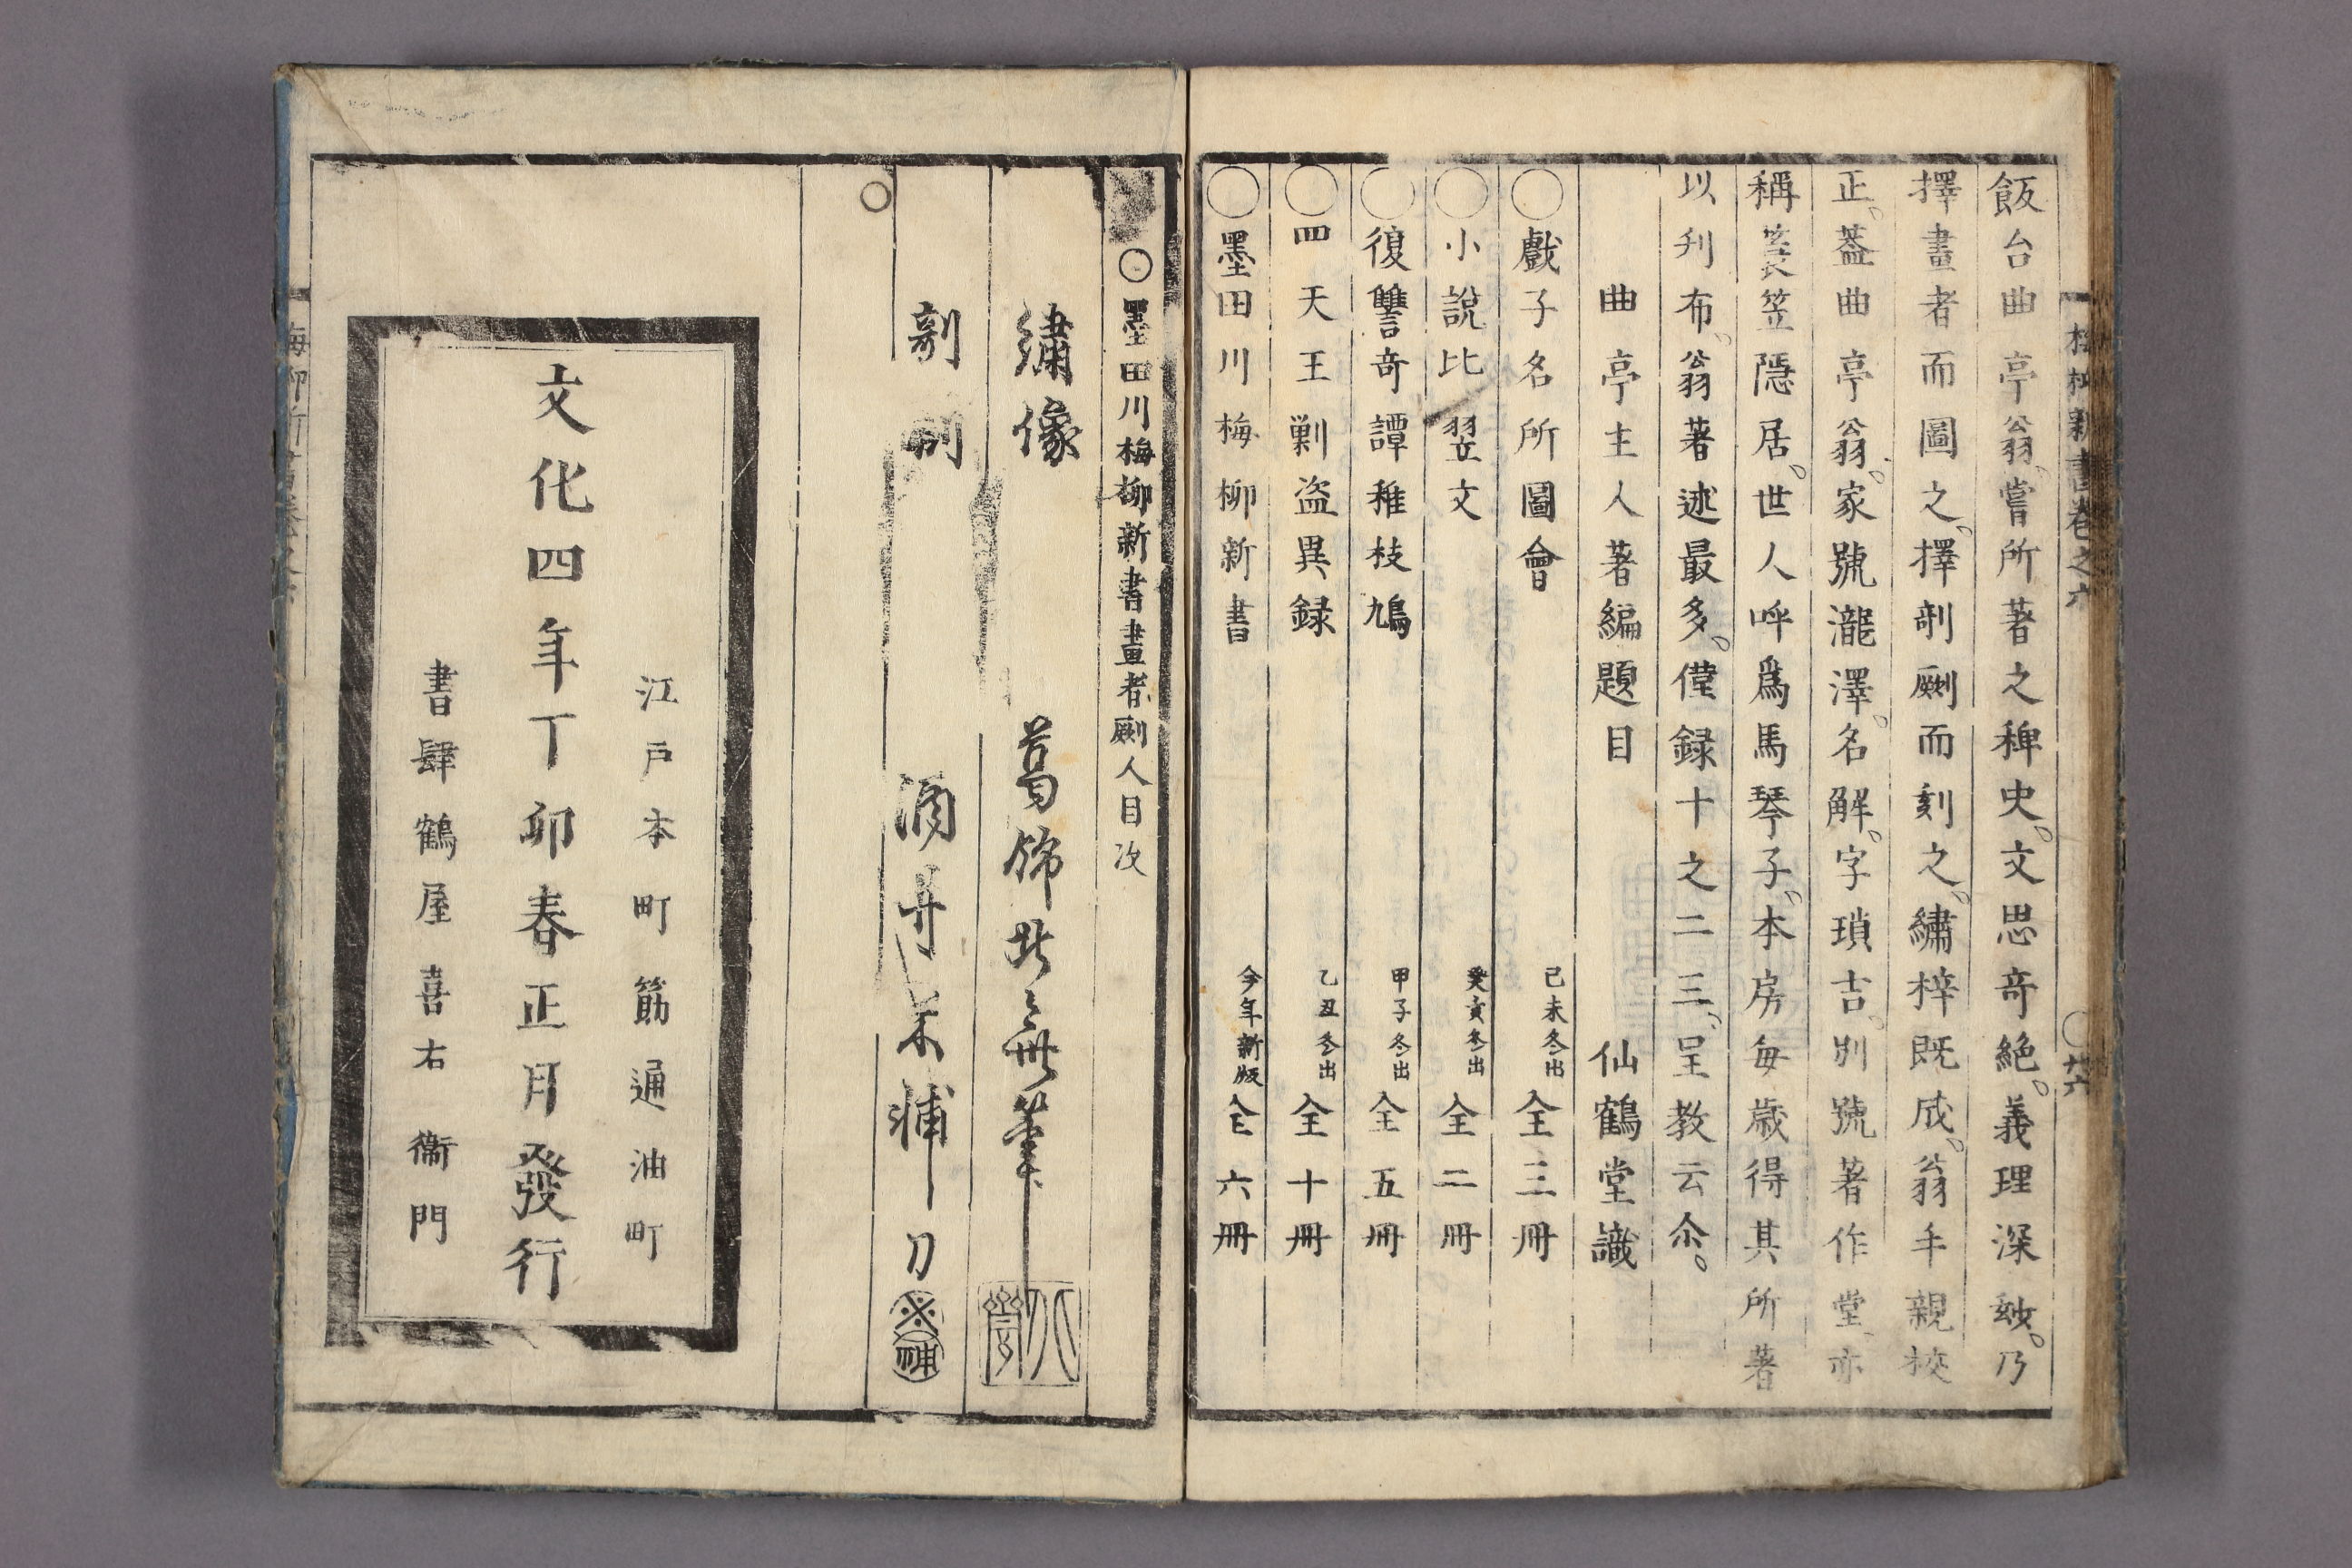 飯台曲亭翁嘗所著之稗史文思奇絶義理深玅乃
擇畫者而圖之擇剞劂而刻之繡梓既成翁手親校
正葢曲亭翁家號瀧澤名解字瑣吉別號著作堂亦
稱蓑笠隱居世人呼爲馬琴子本房毎歳得其所著
以刊布翁著述最多僅録十之二三呈教云尒
曲亭主人著編題目 仙鶴堂識
○戲子名所圖會 己未冬出 全三冊
○小說比翌文 癸亥冬出 全二冊
○復讐奇譚稚枝鳩 甲子冬出 全五冊
○四天王剿盗異録 乙丑冬出 全十冊
○墨田川梅柳新書 今年新版 全六冊
○墨田川梅柳新書畫者劂人目次
繡像 葛飾北斎筆
剞劂 酒井米輔刀
江戸本町筋通油町
文化四年丁卯春正月發行
書肆鶴屋喜右衞門